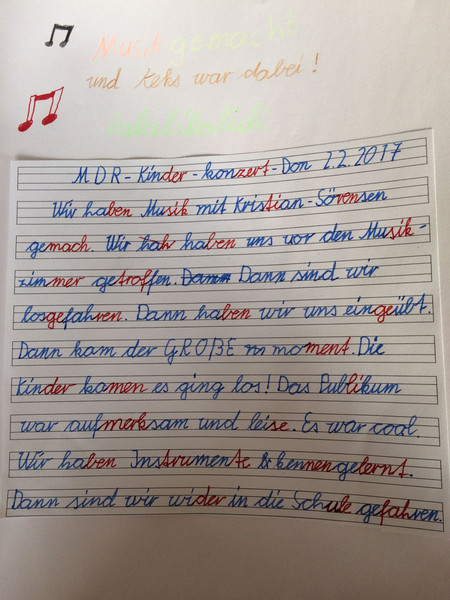 Musik gemacht
und Keks war dabei!
MDR-Kinder-konzert-Don 2.2.2017
Wir haben Musik mit Kristian-Sörensen
gemach. Wir hah haben uns vor den Musik-
zimmer getroffen. Dann Dann sind wir
losgefahren. Dann haben wir uns eingeübt.
Dann kam der GROẞE m moment. Die
Kinder kamen es ging los! Das Publikum
war aufmerksam und leise. Es war cool.
Wir haben Instrumente kennengelernt.
Dann sind wir wider in die Schule gefahren.